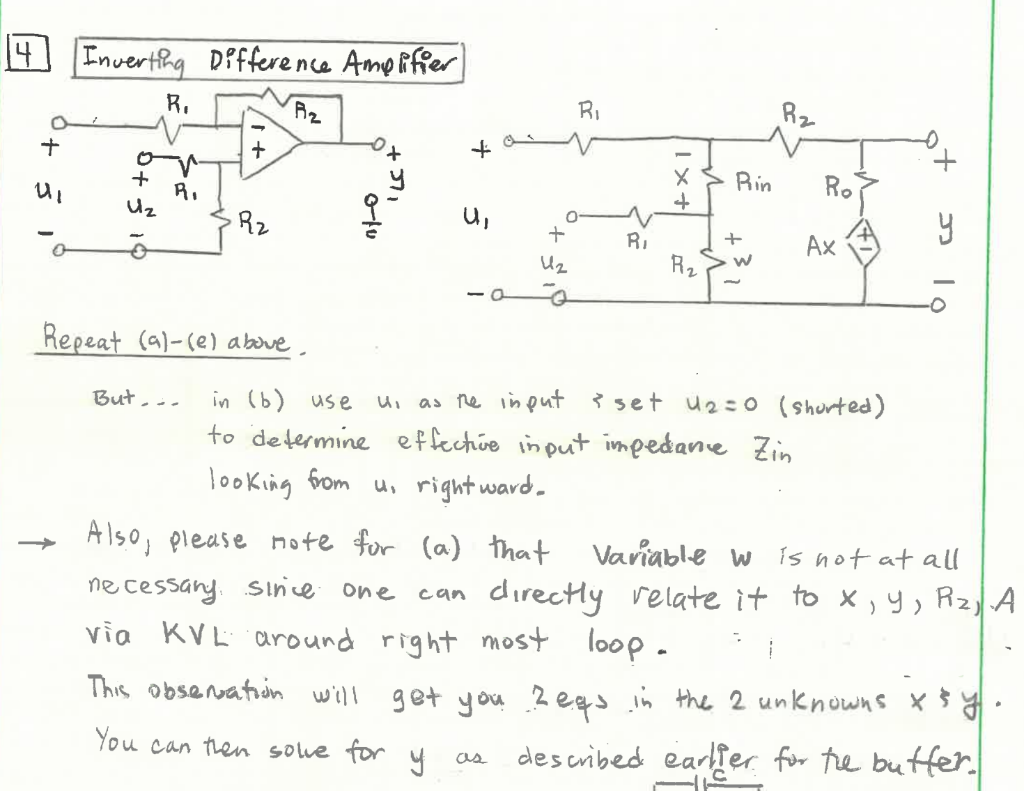 4 Inverting Difference Amplifier
R₁ R₂ R₁ R₂
+ - + + + - x Rin R₀ +
u₁ + R₁ y u₁ + R₁ + Ax + y
u₂ R₂ - u₂ R₂ w -
- - - - - -
Repeat (a)-(e) above.
But... in (b) use u₁ as the input & set u₂=0 (shorted)
to determine effective input impedance Zin
looking from u₁ rightward.
→ Also, please note for (a) that Variable w is not at all
necessary since one can directly relate it to x, y, R₂, A
via KVL around right most loop.
This observation will get you 2 eqs in the 2 unknowns x & y.
You can then solve for y as described earlier for the buffer.
C